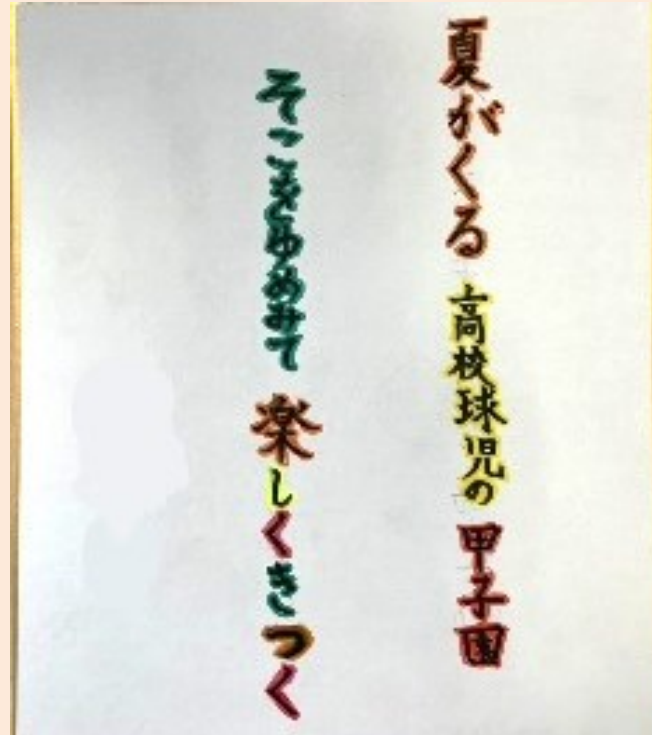 夏がくる 高校球児の 甲子園
そこをゆめみて 楽しくきつく